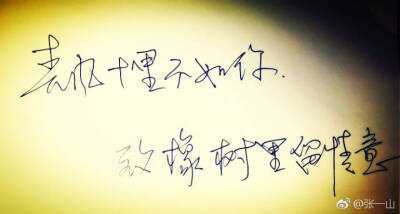 春风十里不如你.
致橡树里留情意
@张一山